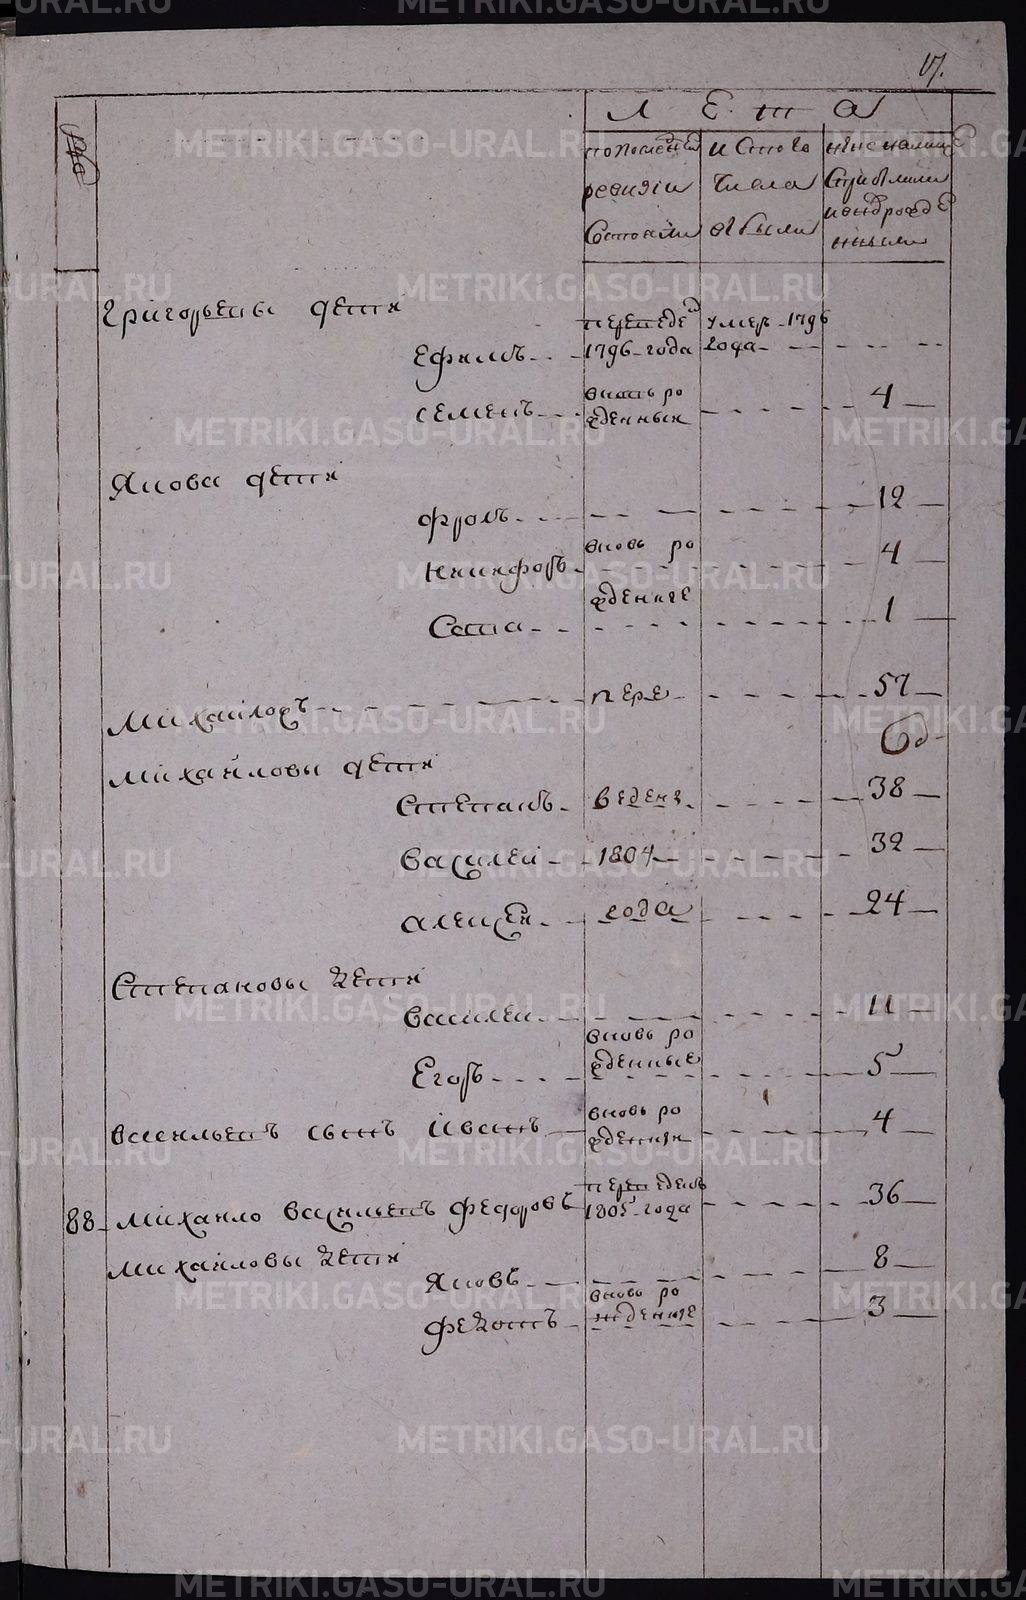 17.
Л Е т а
по последней
ревизии
состояли
и с того
числа
выбыли
ныне налице
с прибылыми
и вновь рожде
нными
Григорьевы дети
Ефимъ
переведе 1796 года
умер 1796 года
семенъ
вновь ро жденных
4
Якова дети
Фролъ
12
Никифоръ
вновь ро
4
жденные
Сава
1
Михайлохъ
пере
57
Михайловы дети
Степанъ
ведены
38
Василей
1804
32
алексей
года
24
Степановы дети
василеи
11
Егоръ
вновь ро жденные
5
васильевъ сынъ иванъ
вновь ро жденны
4
88
Михайло Васильевъ Федоровъ
переведенъ 1805 года
36
Михайловы дети
Яковъ
8
Федотъ
вновь ро жденные
3
METRIKI.GASO-URAL.RU